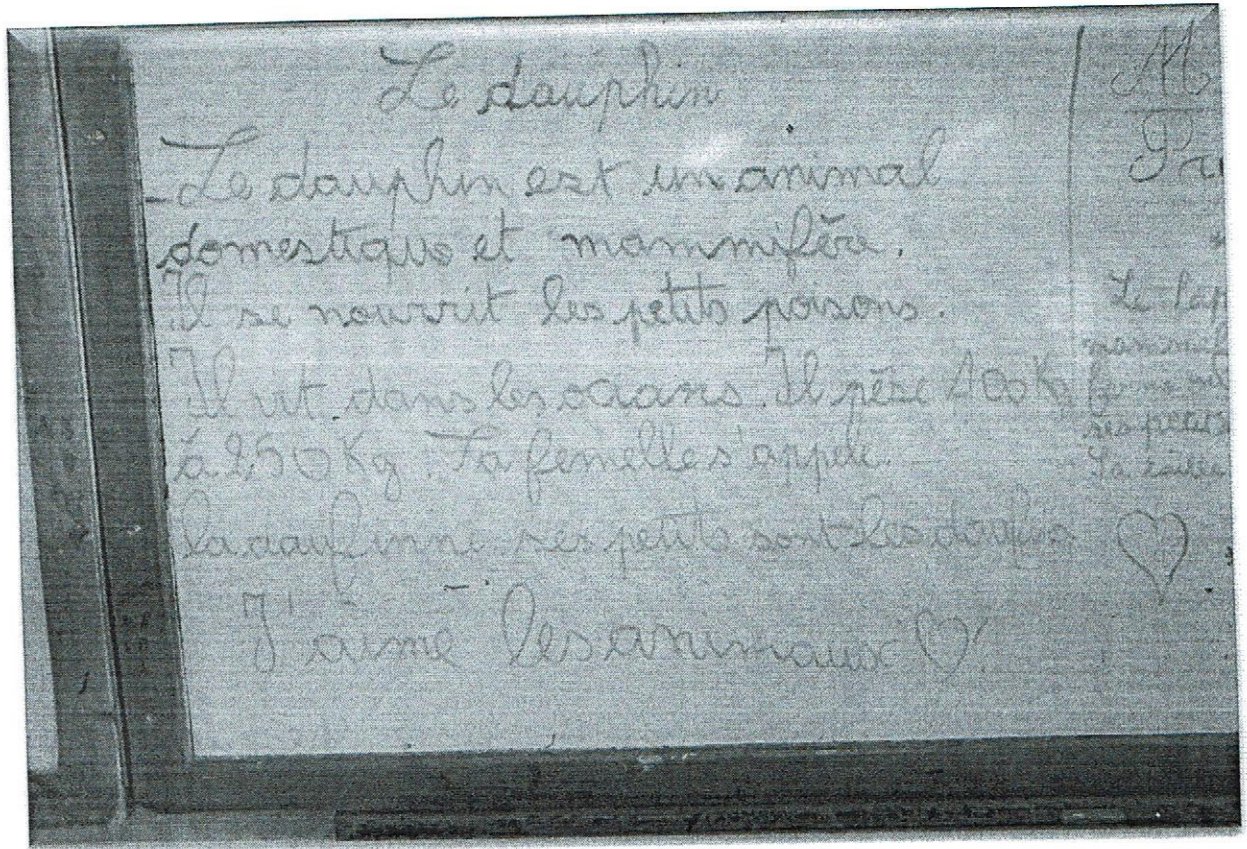 Le dauphin
- Le dauphin est un animal
domestique et mammifère.
Il se nourrit les petits poisons.
Il vit dans les océans. Il pèse 100 Kg
à 250 Kg. La femelle s'appele
la daufinne ses petits sont les
J'aime les animaux ♡!
M
Pr
Le lap
mammif
ses petits
La
♡